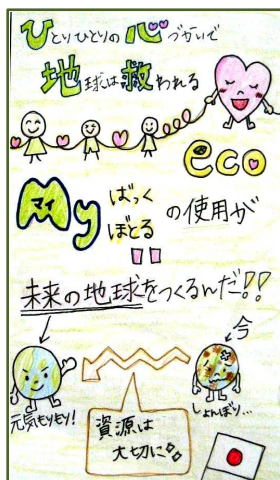 ひとりひとりの心づかいで
地球は救われる
eco
Myマイ
ばっく
ぼとる
の使用が
未来の地球をつくるんだ!!
今
元気もりもり!
しょんぼり...
資源は
大切に